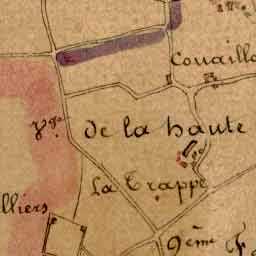 Couaill
Vge de la haute
La Trappe
lliers
9ème F